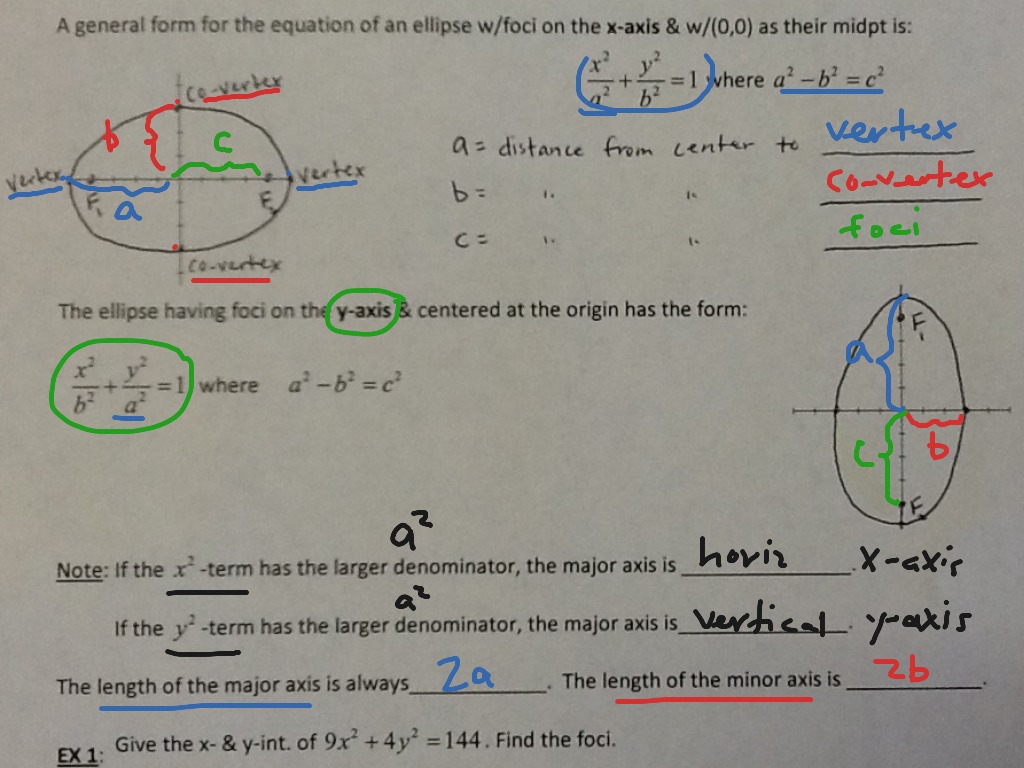 A general form for the equation of an ellipse w/foci on the x-axis & w/(0,0) as their midpt is:
x²/a² + y²/b² = 1 where a² − b² = c²
co-vertex
b
c
vertex
vertex
F₁
a
F₂
co-vertex
a = distance from center to vertex
b = " " co-vertex
c = " " foci
The ellipse having foci on the y-axis & centered at the origin has the form:
x²/b² + y²/a² = 1 where a² − b² = c²
F₁
a
c
b
F₂
a²
Note: If the x²-term has the larger denominator, the major axis is horiz. x-axis
a²
If the y²-term has the larger denominator, the major axis is vertical. y-axis
The length of the major axis is always 2a. The length of the minor axis is 2b.
EX 1: Give the x- & y-int. of 9x² + 4y² = 144. Find the foci.